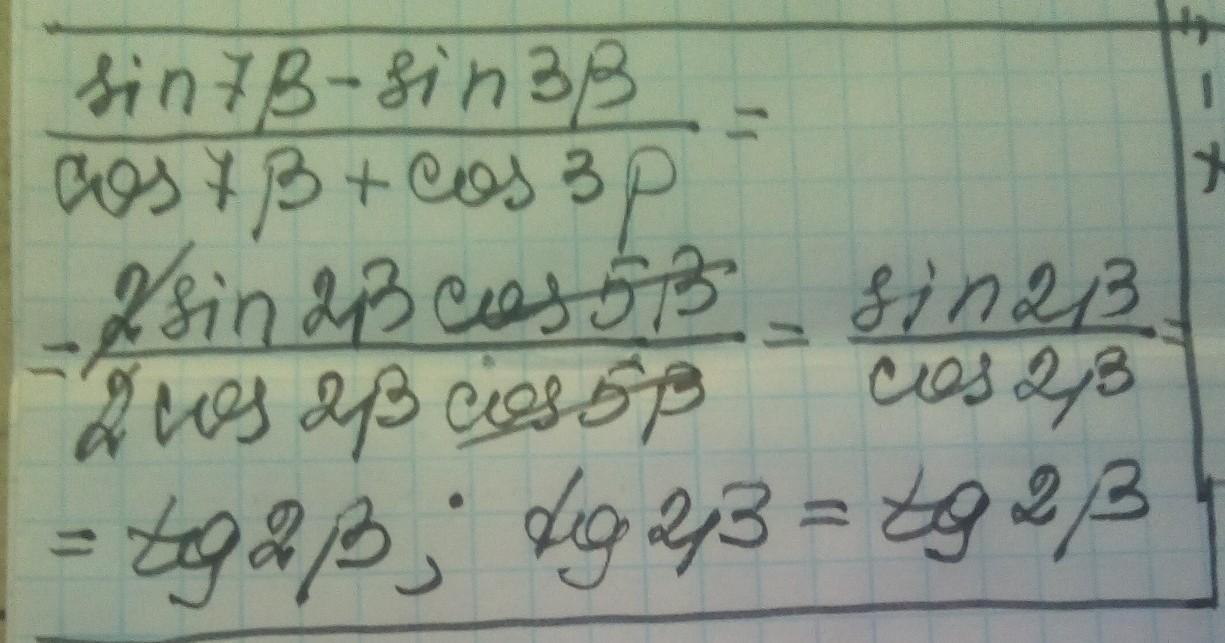 sin7β - sin3β
cos7β + cos3β =
= 2sin2β cos5β / 2cos2β cos5β = sin2β / cos2β =
= tg2β; tg2β = tg2β